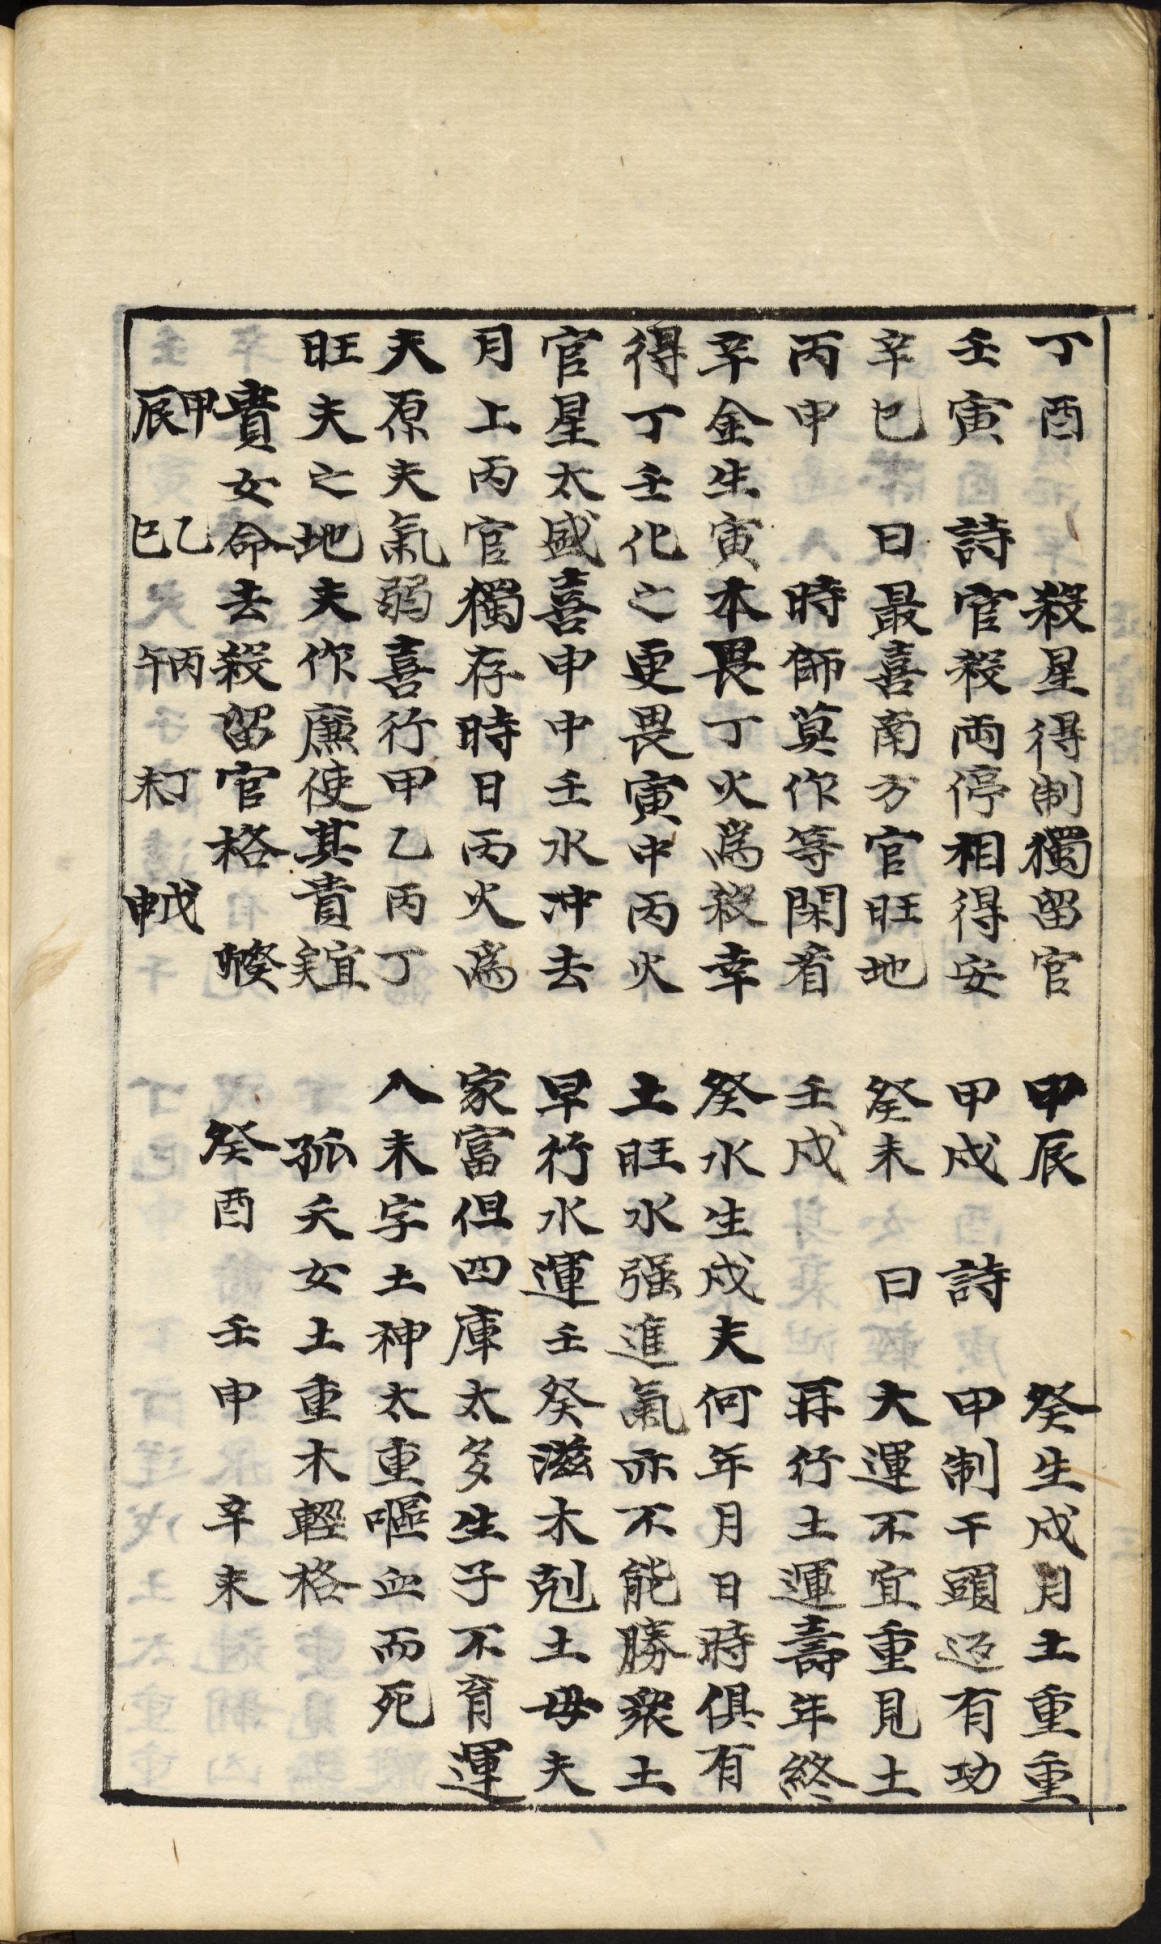 丁酉　殺星得制獨留官
壬寅　詩官殺両停相得安
辛巳　曰最喜南方官旺地
丙申　時師莫作等閑看
辛金生寅本畏丁火為殺幸
得丁壬化之更畏寅中丙火
官星太盛喜申中壬水冲去
月上丙官獨存時日丙火為
夫原夫氣弱喜行甲乙丙丁
旺夫之地夫作廉使其貴
貴女命去殺留官格　癸卯
甲辰　乙巳　丙午　丁未　戊申
甲辰　癸生戌月土重重
甲戌　詩　甲制干頭返有功
癸未　曰　大運不宜重見土
壬戌　再行土運壽年終
癸水生戌夫何年月日時俱有
土旺水强進氣亦不能勝衆土
早行水運壬癸滋木剋土母夫
家富但四庫太多生子不育運
入未字土神太重嘔血而死
孤夭女土重木輕格
癸酉　壬申　辛未